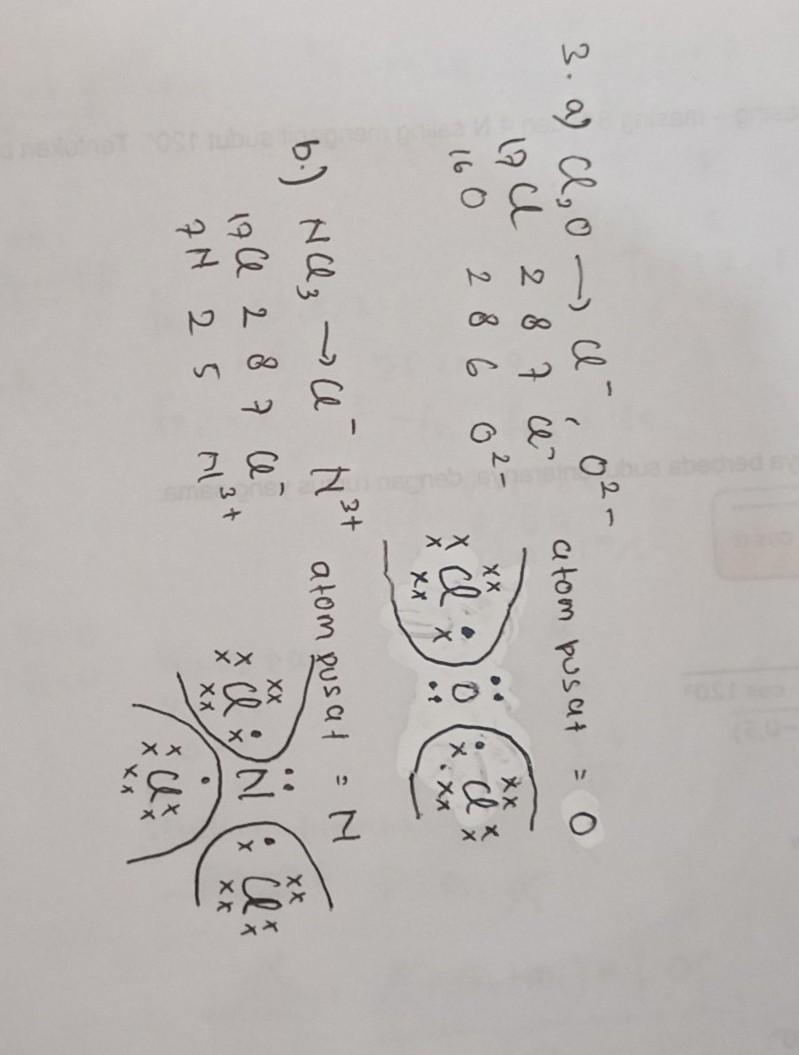 3. a) Cl₂O → Cl⁻, O²⁻ atom pusat = O
17 Cl 2 8 7 Cl⁻
16 O 2 8 6 O²⁻
Cl O Cl
b.) NCl₃ → Cl⁻ N³⁺ atom pusat = N
17 Cl 2 8 7 Cl⁻
7 N 2 5 N³⁺
Cl N Cl
Cl